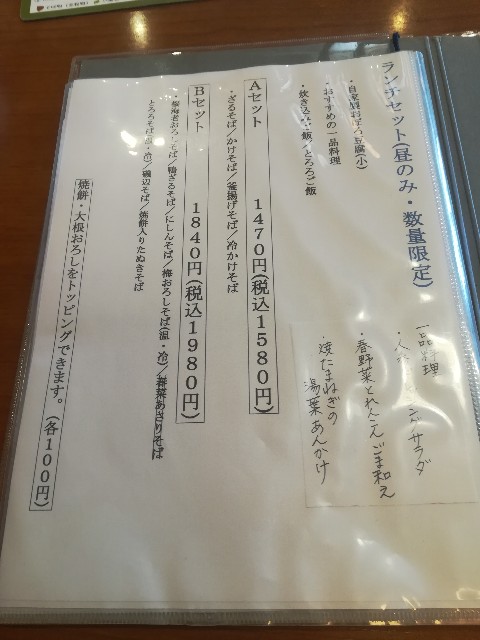 ランチセット(昼のみ・数量限定)
・自家製おぼろ豆腐(小)
・おすすめの一品料理
・炊き込みご飯/とろろご飯
一品料理
サラダ
・春野菜とれんこんごま和え
・焼たまねぎの
湯葉あんかけ
Aセット 1470円(税込1580円)
・ざるそば/かけそば/釜揚げそば/冷かけそば
Bセット 1840円(税込1980円)
・桜海老おろしそば/鴨ざるそば/にしんそば/梅おろしそば(温・冷)/春菜あさりそば
とろろそば(温・冷)/磯辺そば/焼餅入りたぬきそば
焼餅・大根おろしをトッピングできます。(各100円)